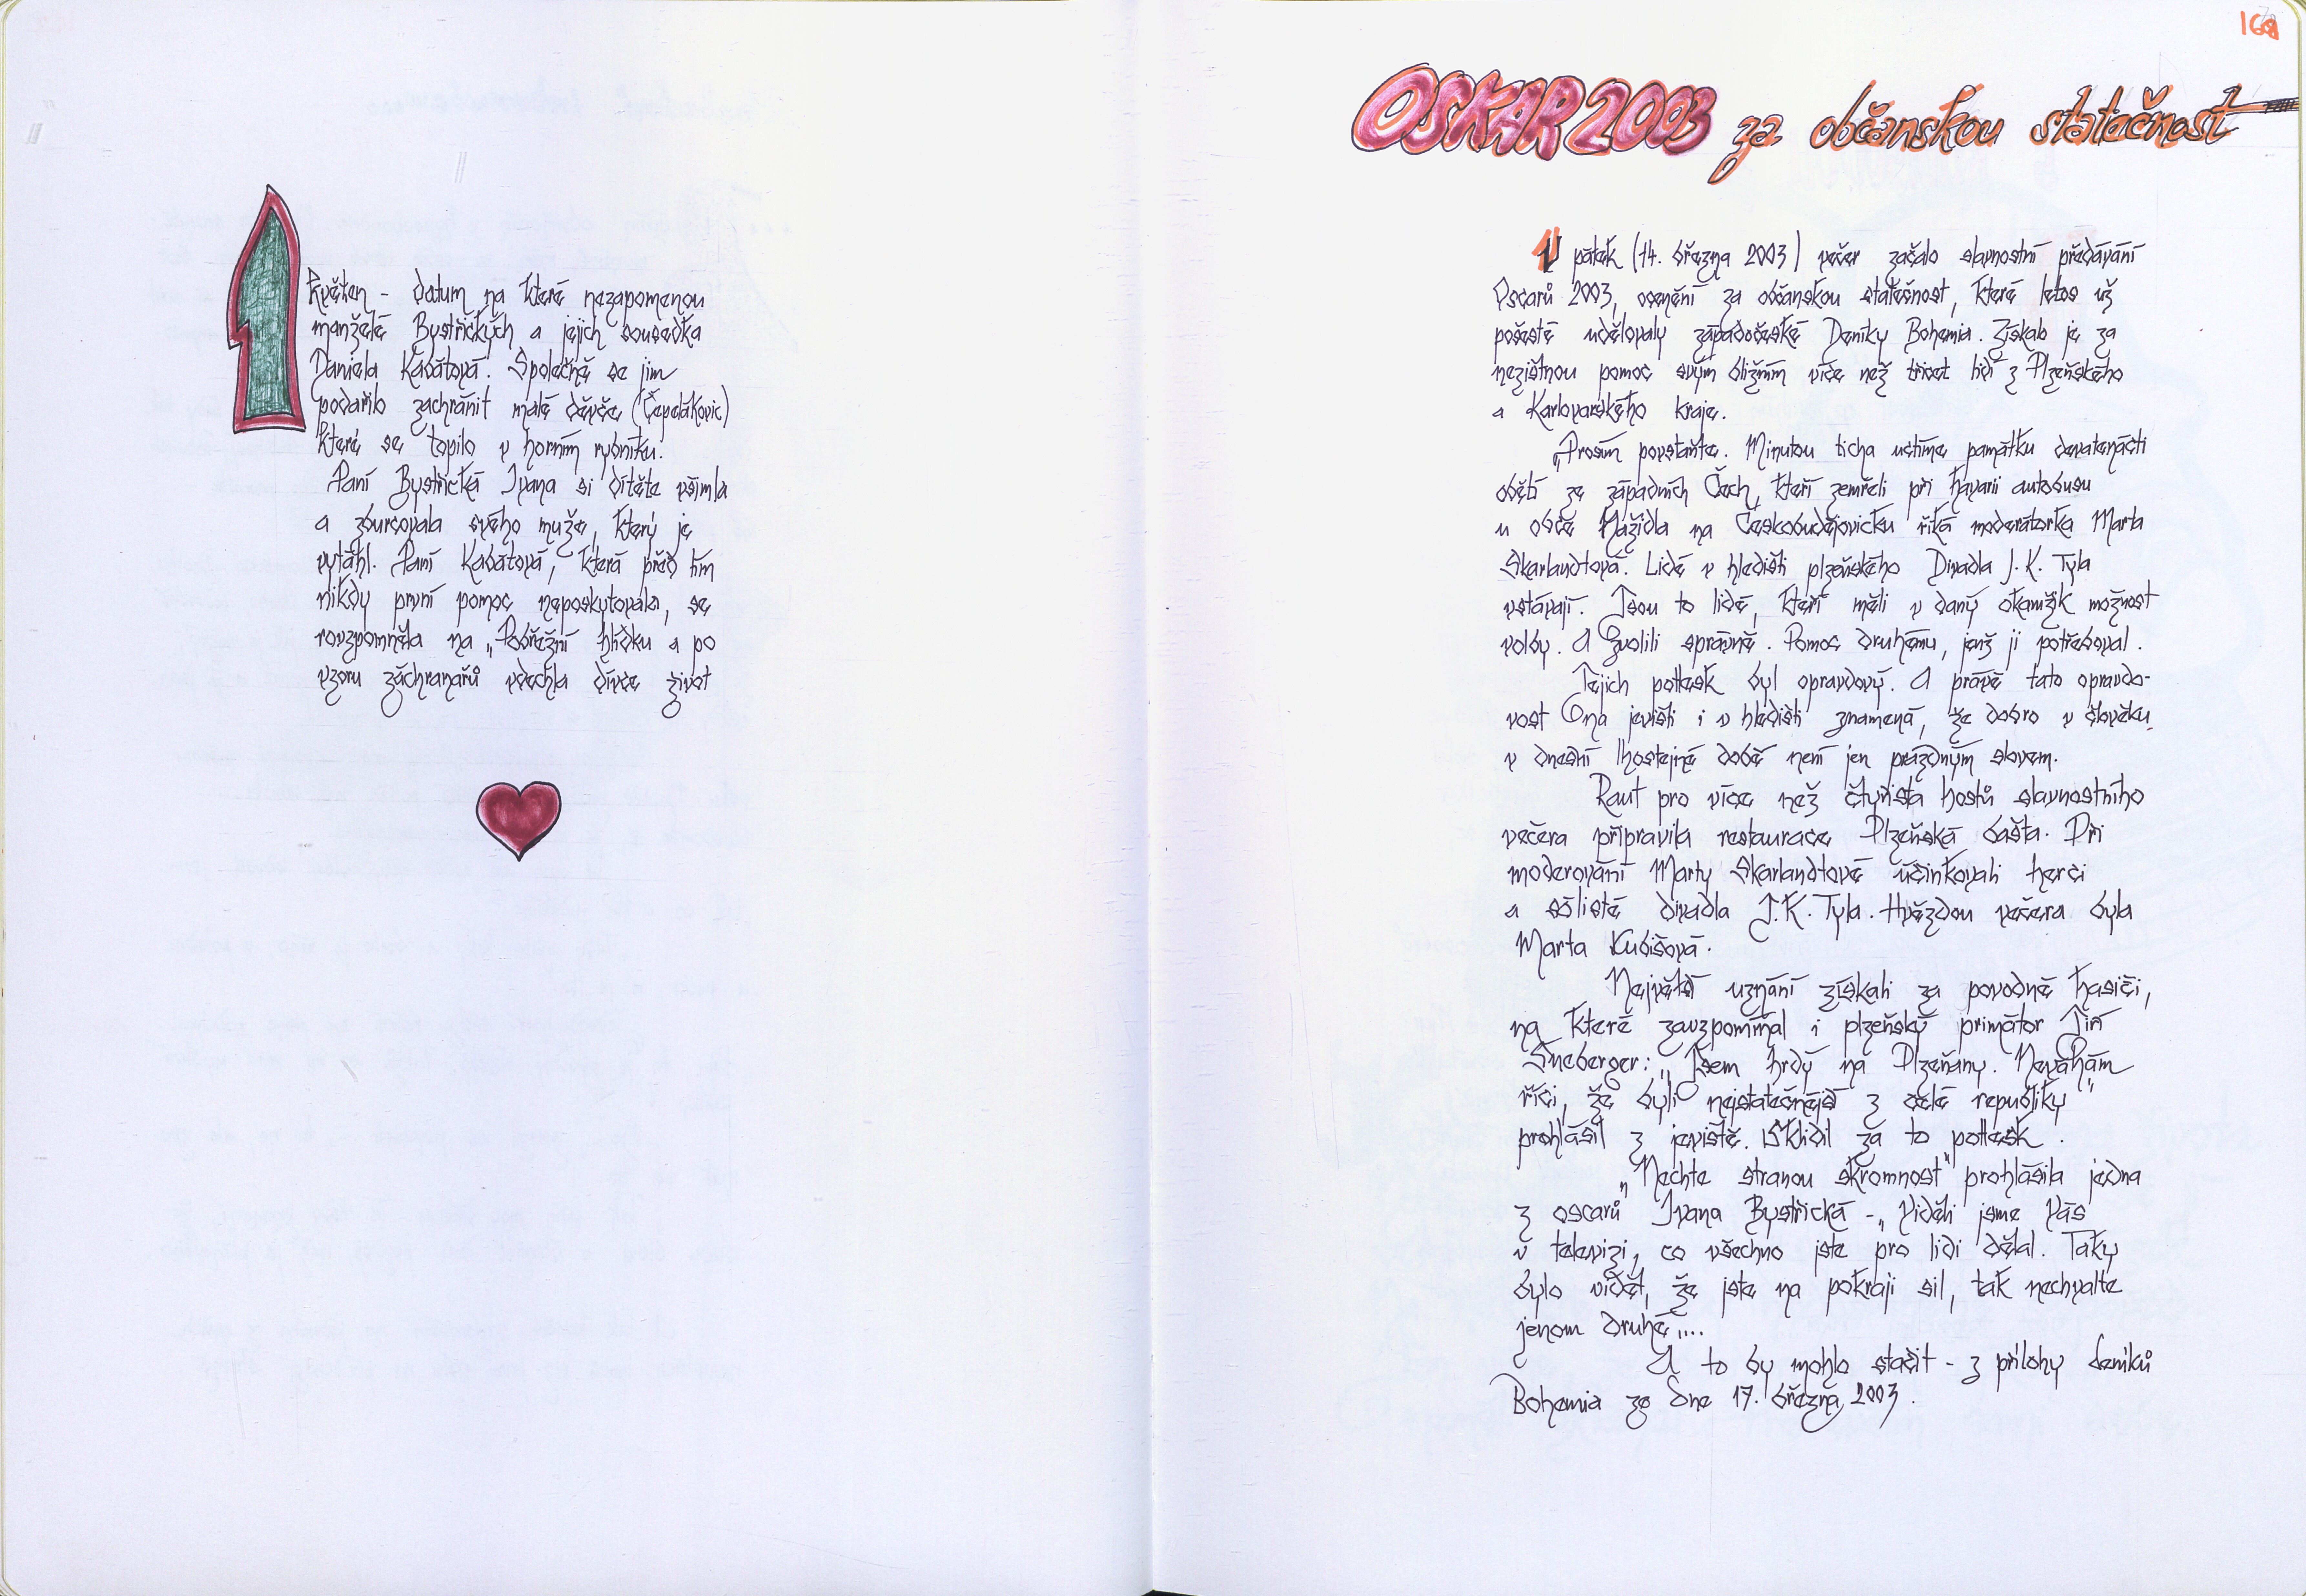 1
Květen - datum na které nezapomenou
manželé Bystřických a jejich sousedka
Daniela Kabátová. Společně se jim
podařilo zachránit malé děvče (Čepelákovic)
které se topilo v horním rybníku.
Paní Bystřická Ivana si dítěte všimla
a zburcovala svého muže, který je
vytáhl. Paní Kabátová, která před tím
nikdy první pomoc neposkytovala, se
rovzpomněla na „Pobřežní hlídku a po
vzoru záchranařů vdechla dívce život
OSKAR 2003 za občanskou statečnost
V pátek (14. března 2003) večer začalo slavnostní předávání
Oscarů 2003, ocenění za občanskou statečnost, které letos už
pošesté udělovaly západočeské Deníky Bohemia. Získalo je za
nezištnou pomoc svým bližním více než třicet lidí z Plzeňského
a Karlovarského kraje.
„Prosím povstaňte. Minutou ticha uctíme památku devatenácti
obětí ze západních Čech, kteří zemřeli při havarii autobusu
u obce Nažidla na Českobudějovicku říká moderátorka Marta
Skarlandtová. Lidé v hledišti plzeňského Divadla J. K. Tyla
vstávají. Jsou to lidé, kteří měli v daný okamžik možnost
volby. A zvolili správně. Pomoc druhému, jenž ji potřeboval.
Jejich potlesk byl opravdový. A právě tato opravdo-
vost na jevišti i v hledišti znamená, že dobro v člověku
v dnešní lhostejné době není jen prázdným slovem.
Raut pro více než čtyřista hostů slavnostního
večera připravila restaurace Plzeňská bašta. Při
moderování Marty Skarlandtové účinkovali herci
a sólisté divadla J.K. Tyla. Hvězdou večera byla
Marta Kubišová.
Největší uznání získali za povodně hasiči,
na které zavzpomínal i plzeňský primátor Jiří
Šneberger: „Jsem hrdý na Plzeňany. Neváhám
říci, že byli nejstatečnější z celé republiky"
prohlásil z jeviště. Sklidil za to potlesk.
„Nechte stranou skromnost" prohlásila jedna
z oscarů Ivana Bystřická - „Viděli jsme Vás
v televizi, co všechno jste pro lidi dělal. Taky
bylo vidět, že jste na pokraji sil, tak nechvalte
jenom druhé"...
A to by mohlo stačit - z přílohy deníků
Bohemia ze dne 17. března 2003.